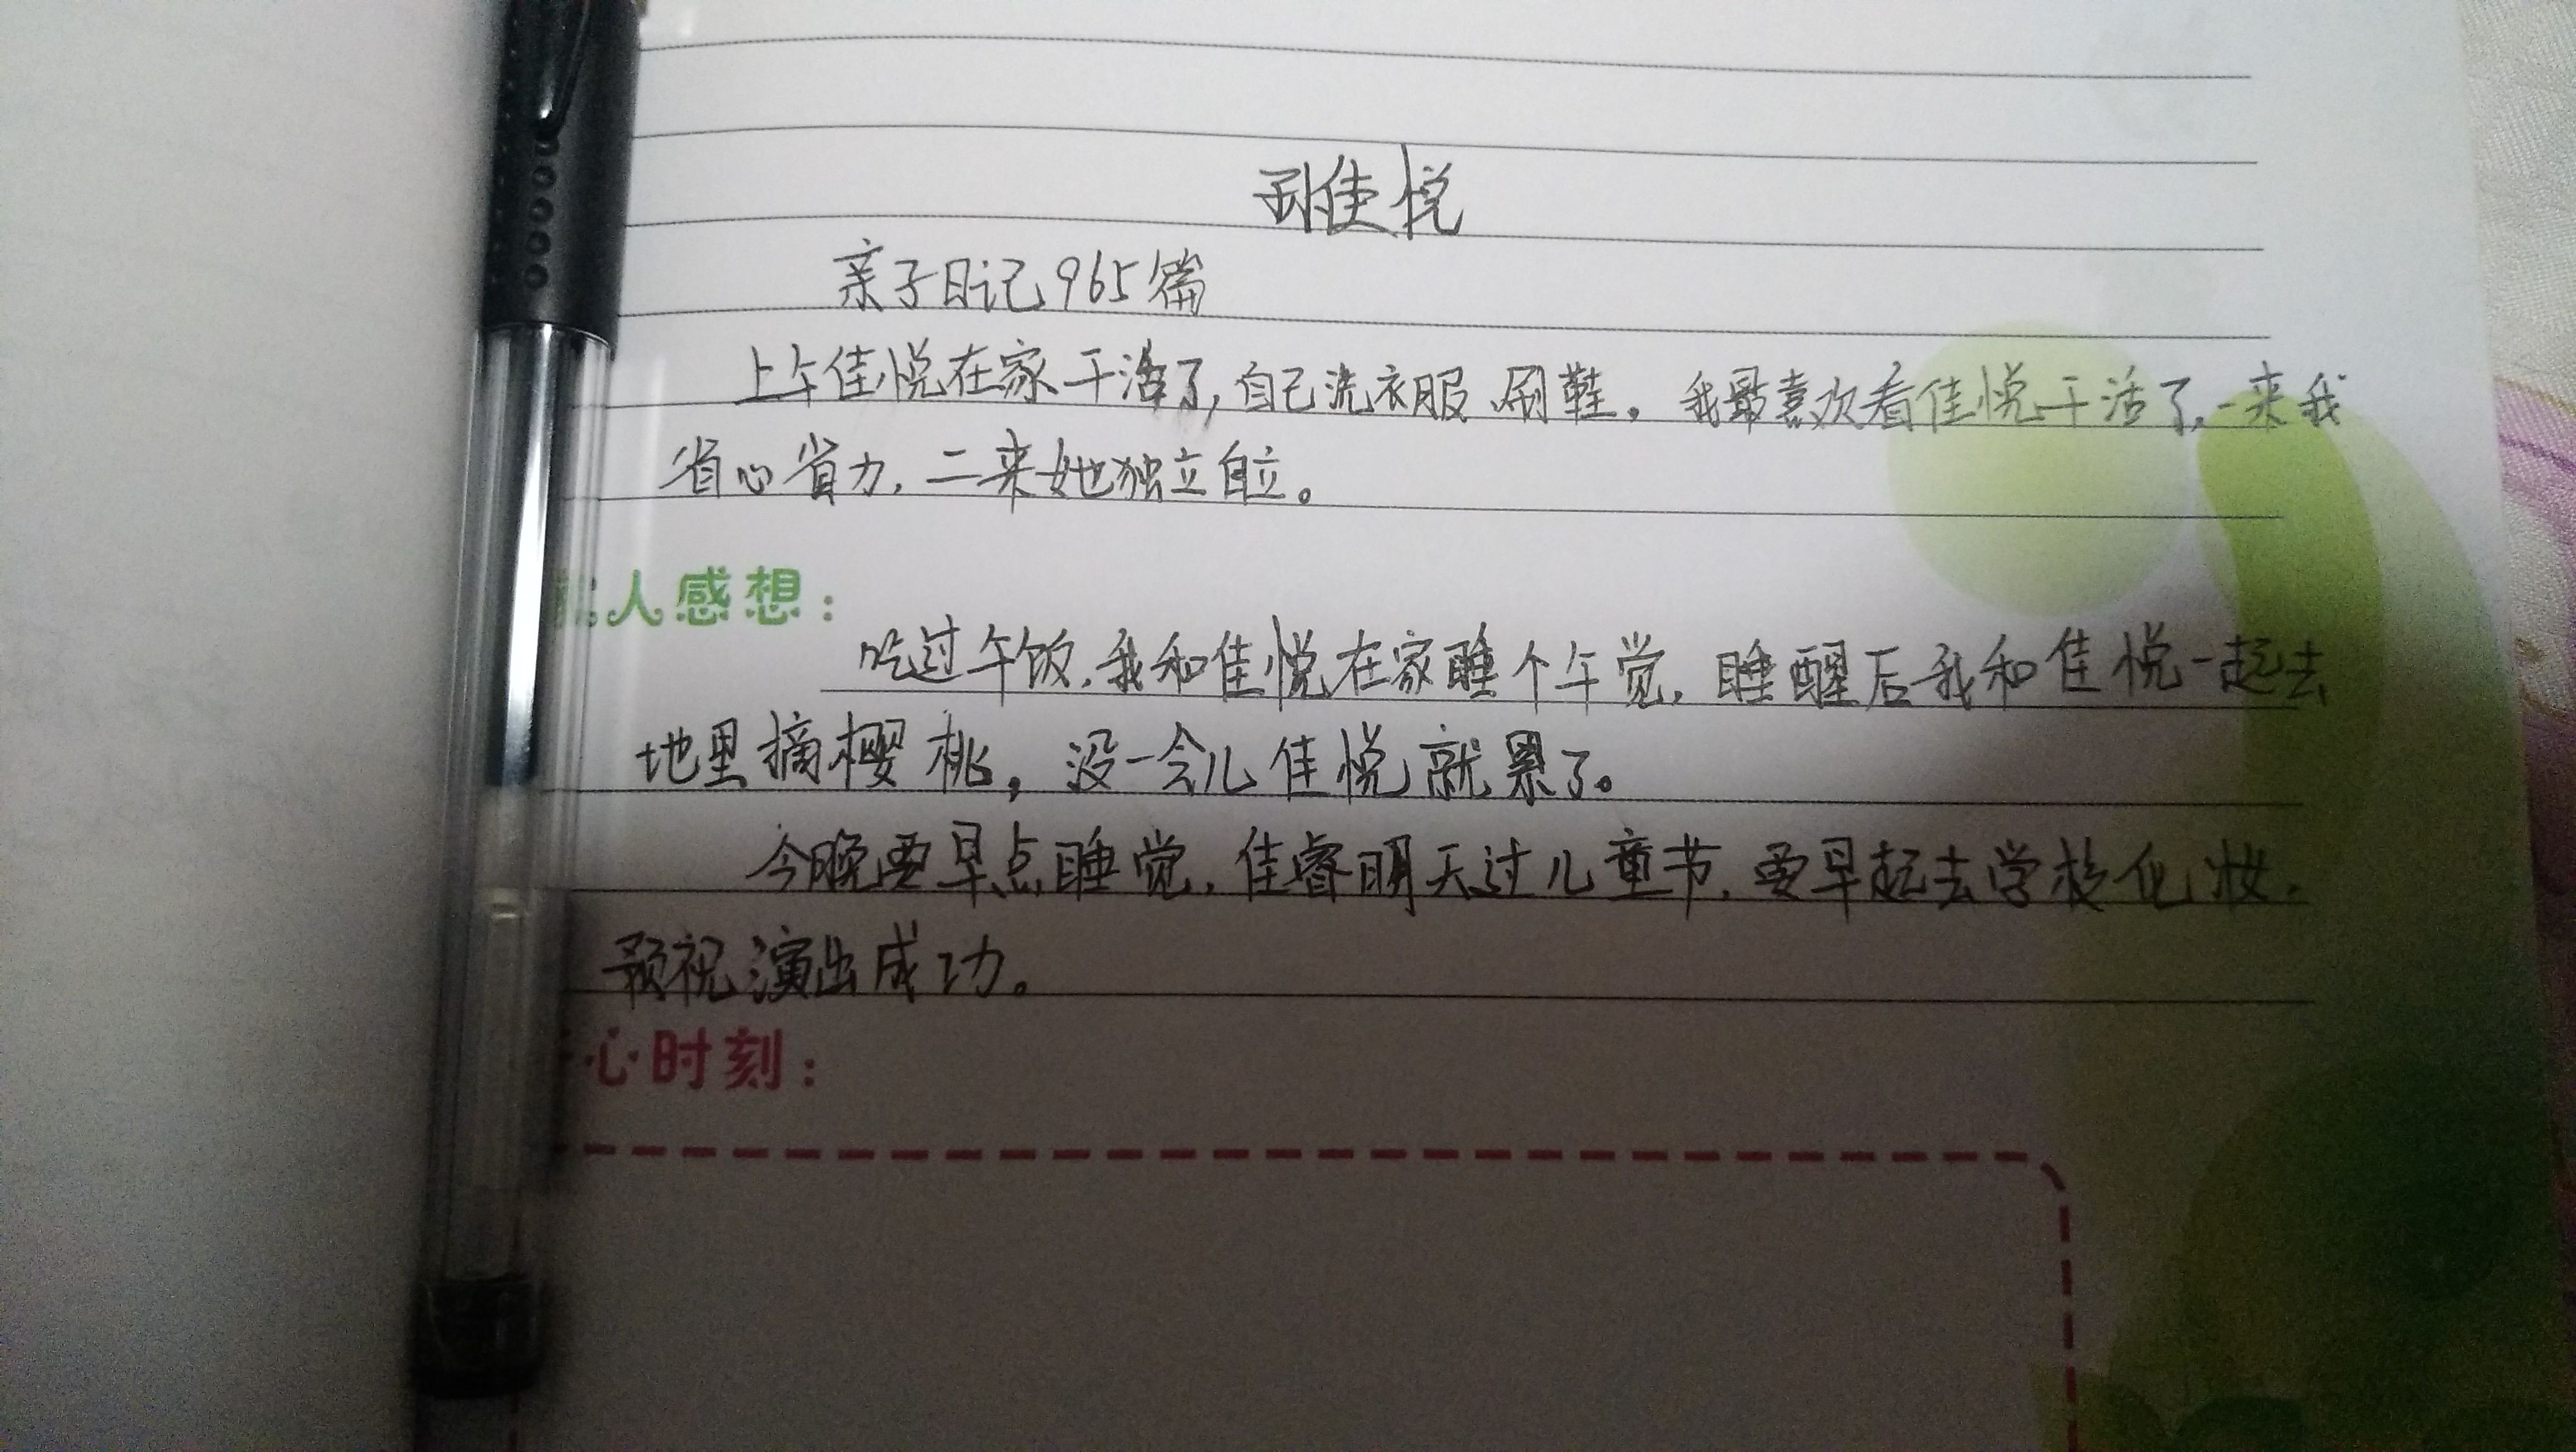 佳悦
亲子日记965篇
上午佳悦在家干活了,自己洗衣服、刷鞋。我最喜欢看佳悦干活了,一来我
省心省力,二来她独立自立。
人感想:
吃过午饭,我和佳悦在家睡个午觉,睡醒后我和佳悦一起去
地里摘樱桃,没一会儿佳悦就累了。
今晚要早点睡觉,佳睿明天过儿童节,要早起去学校化妆,
预祝演出成功。
心时刻: